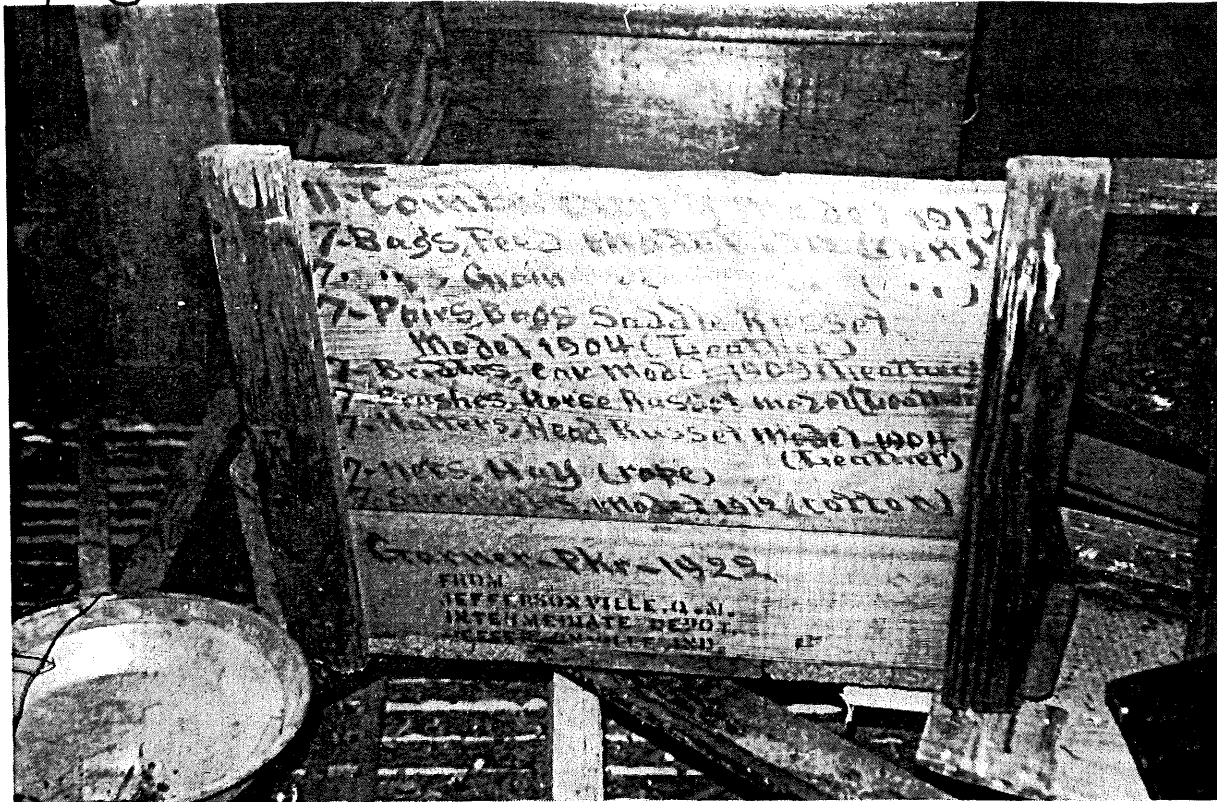 11-Comb Model 1917
7-Bags, Feed Model
7- " , Grain " " ( " " )
7-Pairs, Bags Saddle Russet
Model 1904 (Leather)
7-Bridles, Model-1909 (Leather)
7-Brushes, Horse Russet model (Leather
7-Halters, Head Russet Model-1904
(Leather)
7-Nets, Hay (rope)
7- Model 1912 (cotton)
Garner-Pkr-1922
FROM
JEFFERSONVILLE.Q.M.
INTERMEDIATE DEPOT,
JEFFERSONVILLE IND.